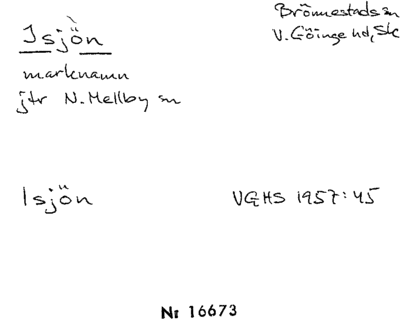 Isjön
Brönnestads sn
V. Göinge hd, Sk
marknamn
jfr N. Mellby sn
Isjön
VGHS 1957:45
Nr 16673